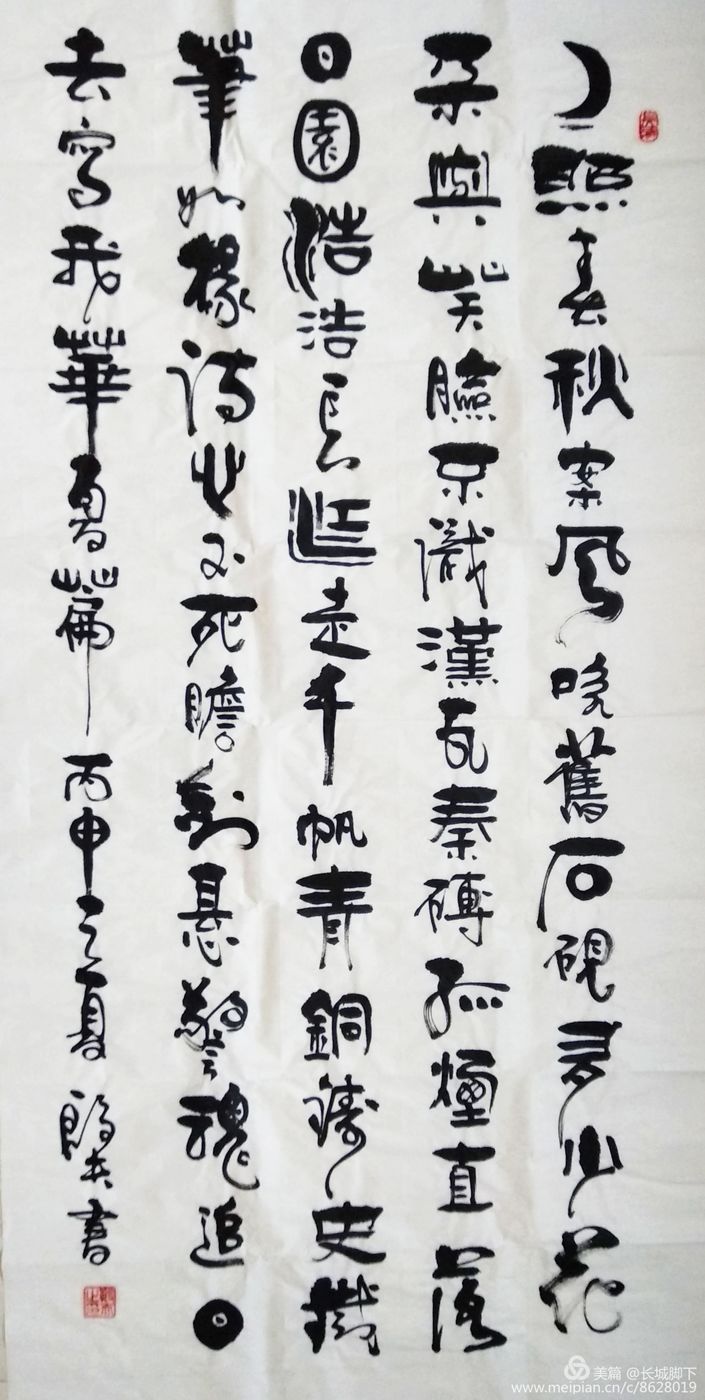 月照春秋案風吹舊石硯多少花
朵與笑臉漢瓦秦磚孤煙直落
日圓浩浩長江走千帆青銅鑄史鐵
筆如椽詩心不死膽劍懸警魂追日
去寫我華夏篇 丙申之夏 夫書
美篇 @长城脚下
www.meipian.cn/c/8628019